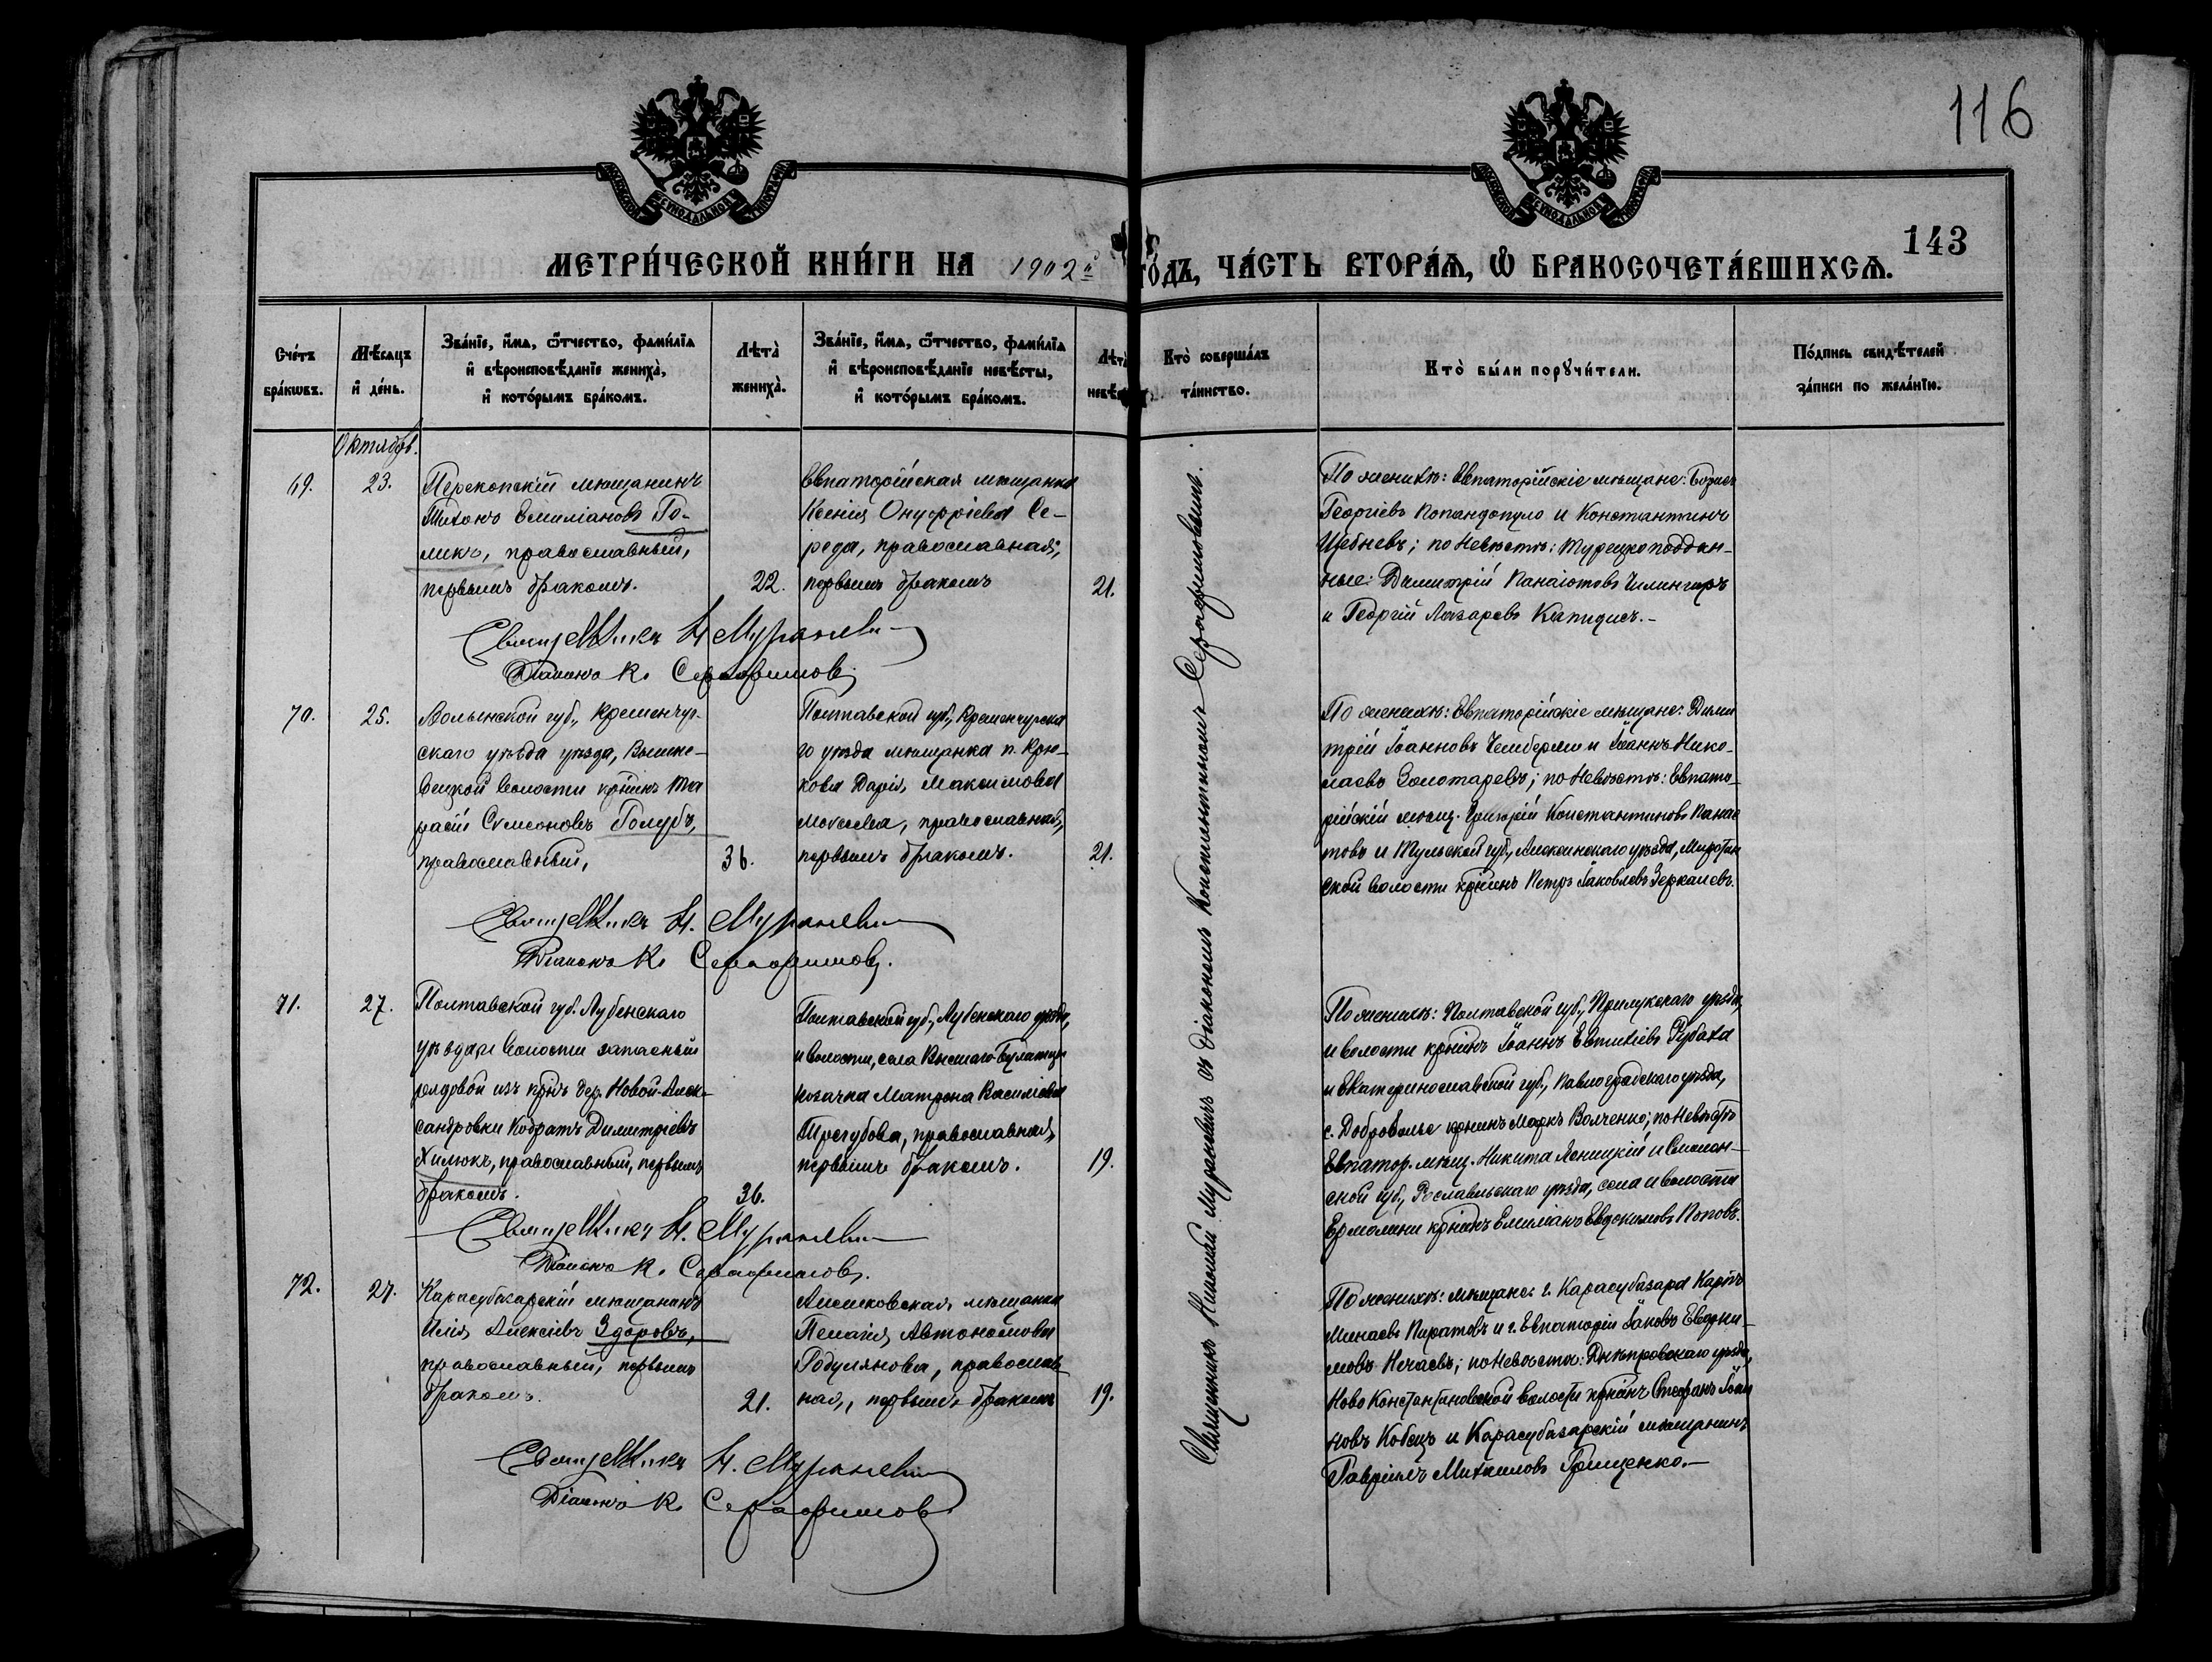 116
143
МЕТРИ́ЧЕСКОЙ КНИ́ГИ НА 1902й ГО́ДЪ, ЧА́СТЬ ВТОРА́Ѧ, Ѡ҆ БРАКОСОЧЕТА́ВШИХСѦ.
Сче́тъ бра́кѡвъ.
Мѣ́сяцъ и҆ де́нь.
Зва́нїе, и҆́мѧ, ѻ҆́тчество, фами́лїѧ и҆ вѣроисповѣ́данїе жениха̀, и҆ кото́рымъ бра́комъ.
Лѣта̀ жениха̀.
Зва́нїе, и҆́мѧ, ѻ҆́тчество, фами́лїѧ и҆ вѣроисповѣ́данїе невѣ́сты, и҆ кото́рымъ бра́комъ.
Лѣта̀
Кто̀ соверша́лъ та́инство.
Кто̀ бы́ли порꙋчи́тели.
По́дпись свидѣ́телей за́писи по жела́нїю.
Октябрь.
69.
23.
Перекопскій мѣщанинъ
Тихонъ Емиліановъ Го-
ликъ, православный,
первымъ бракомъ.
22.
Евпаторійская мѣщанка
Ксенія Онуфріева Се-
реда, православная,
первымъ бракомъ
21.
По женихѣ: Евпаторійскіе мѣщане: Борисъ
Георгіевъ Попандопуло и Константинъ
Щебневъ; по невѣстѣ: турецкоподдан-
ные: Димитрій Панаіотовъ Чилингиръ
и Георгій Лазаревъ
Священникъ Н. Мураневич
Діаконъ К. Серафимовъ.
70.
25.
Волынской губ., Кременчуг-
скаго уѣзда уѣзда,
волости крѣнинъ Та
расій Сѵмеоновъ Голубъ,
православный,
36.
Полтавской губ., Кременчугска
го уѣзда мѣщанка п. Крю-
кова Дарія Максимова
православная,
первымъ бракомъ.
21.
По женихѣ: Евпаторійскіе мѣщане: Дими
трій Іоанновъ и Іоаннъ Нико-
лаевъ Золотаревъ; по невѣстѣ: Евпато-
рійскій мѣщ. Григорій Константиновъ Панаі
товъ и Тульской губ., Алексинскаго уѣзда,
ской волости крѣнинъ Петръ Іаковлевъ Зеркалевъ.
Священникъ Н. Мураневич
Діаконъ К. Серафимовъ.
71.
27.
Полтавской губ. Лубенскаго
уѣзда и волости запасный
рядовой изъ крѣнъ дер. Новой-Алек-
сандровки Кодратъ Димитріевъ
Хилюкъ, православный, первымъ
бракомъ.
36.
Полтавской губ., Лубенскаго уѣзда,
и волости, села Высшаго-Булатца
козачка Матрона Василіева
Трегубова, православная,
первымъ бракомъ.
19.
По женихѣ: Полтавской губ., Прилукскаго уѣзда,
и волости крѣнинъ Іоаннъ Евтихіевъ Рубаха
и Екатеринославской губ., Павлоградскаго уѣзда,
с. Доброволье крѣнинъ Маркъ Волченко; по невѣстѣ
Евпатор. мѣщ. Никита и Смолен-
ской губ., Рославльскаго уѣзда, села и волости
Ермолини крѣнинъ Емиліанъ Евдокимовъ Поповъ.
Священникъ Н. Мураневич
Діаконъ К. Серафимовъ.
72.
27.
Карасубазарскій мѣщанинъ
Илія Алексіевъ Здоровъ,
православный, первымъ
бракомъ.
21.
Алешковская мѣщанка
Пелагія Автономова
Годулянова, православ-
ная, первымъ бракомъ
19.
По женихѣ: мѣщане: г. Карасубазара Карпъ
Минаевъ Пиратовъ и г. Евпаторіи Іаковъ Евдоки-
мовъ Нечаевъ; по невѣстѣ: Днѣпровскаго уѣзда,
Ново Константиновской волости крѣнинъ Стефанъ Іоан
новъ Кобецъ и Карасубазарскій мѣщанинъ
Гавріилъ Михаиловъ Грищенко.
Священникъ Н. Мураневич
Діаконъ К. Серафимовъ
Священникъ Николай Мураневичъ съ діакономъ Константиномъ Серафимовымъ.